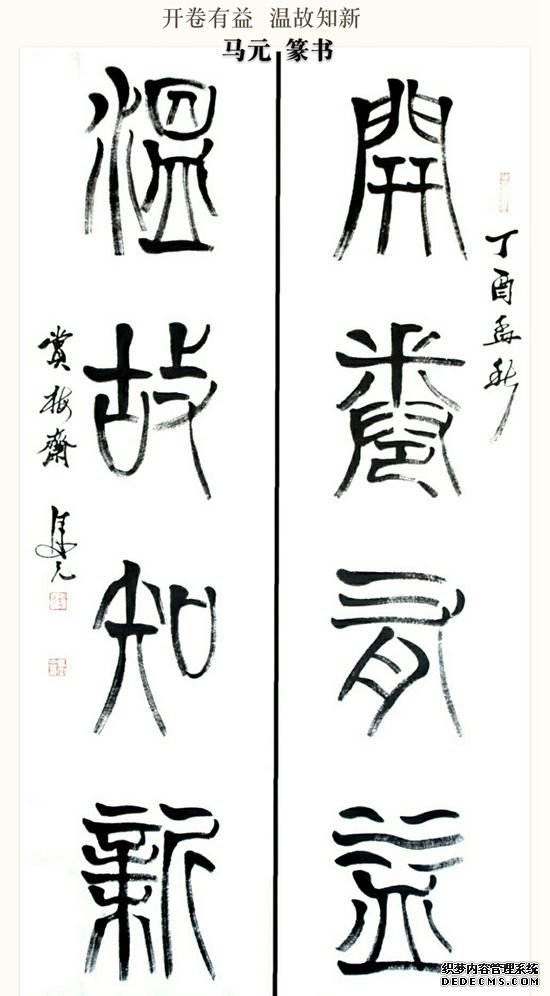 开卷有益 温故知新
马元 篆书
開卷有益
丁酉孟秋
溫故知新
賞梅齋 馬元
织梦内容管理系统
DEDECMS.COM